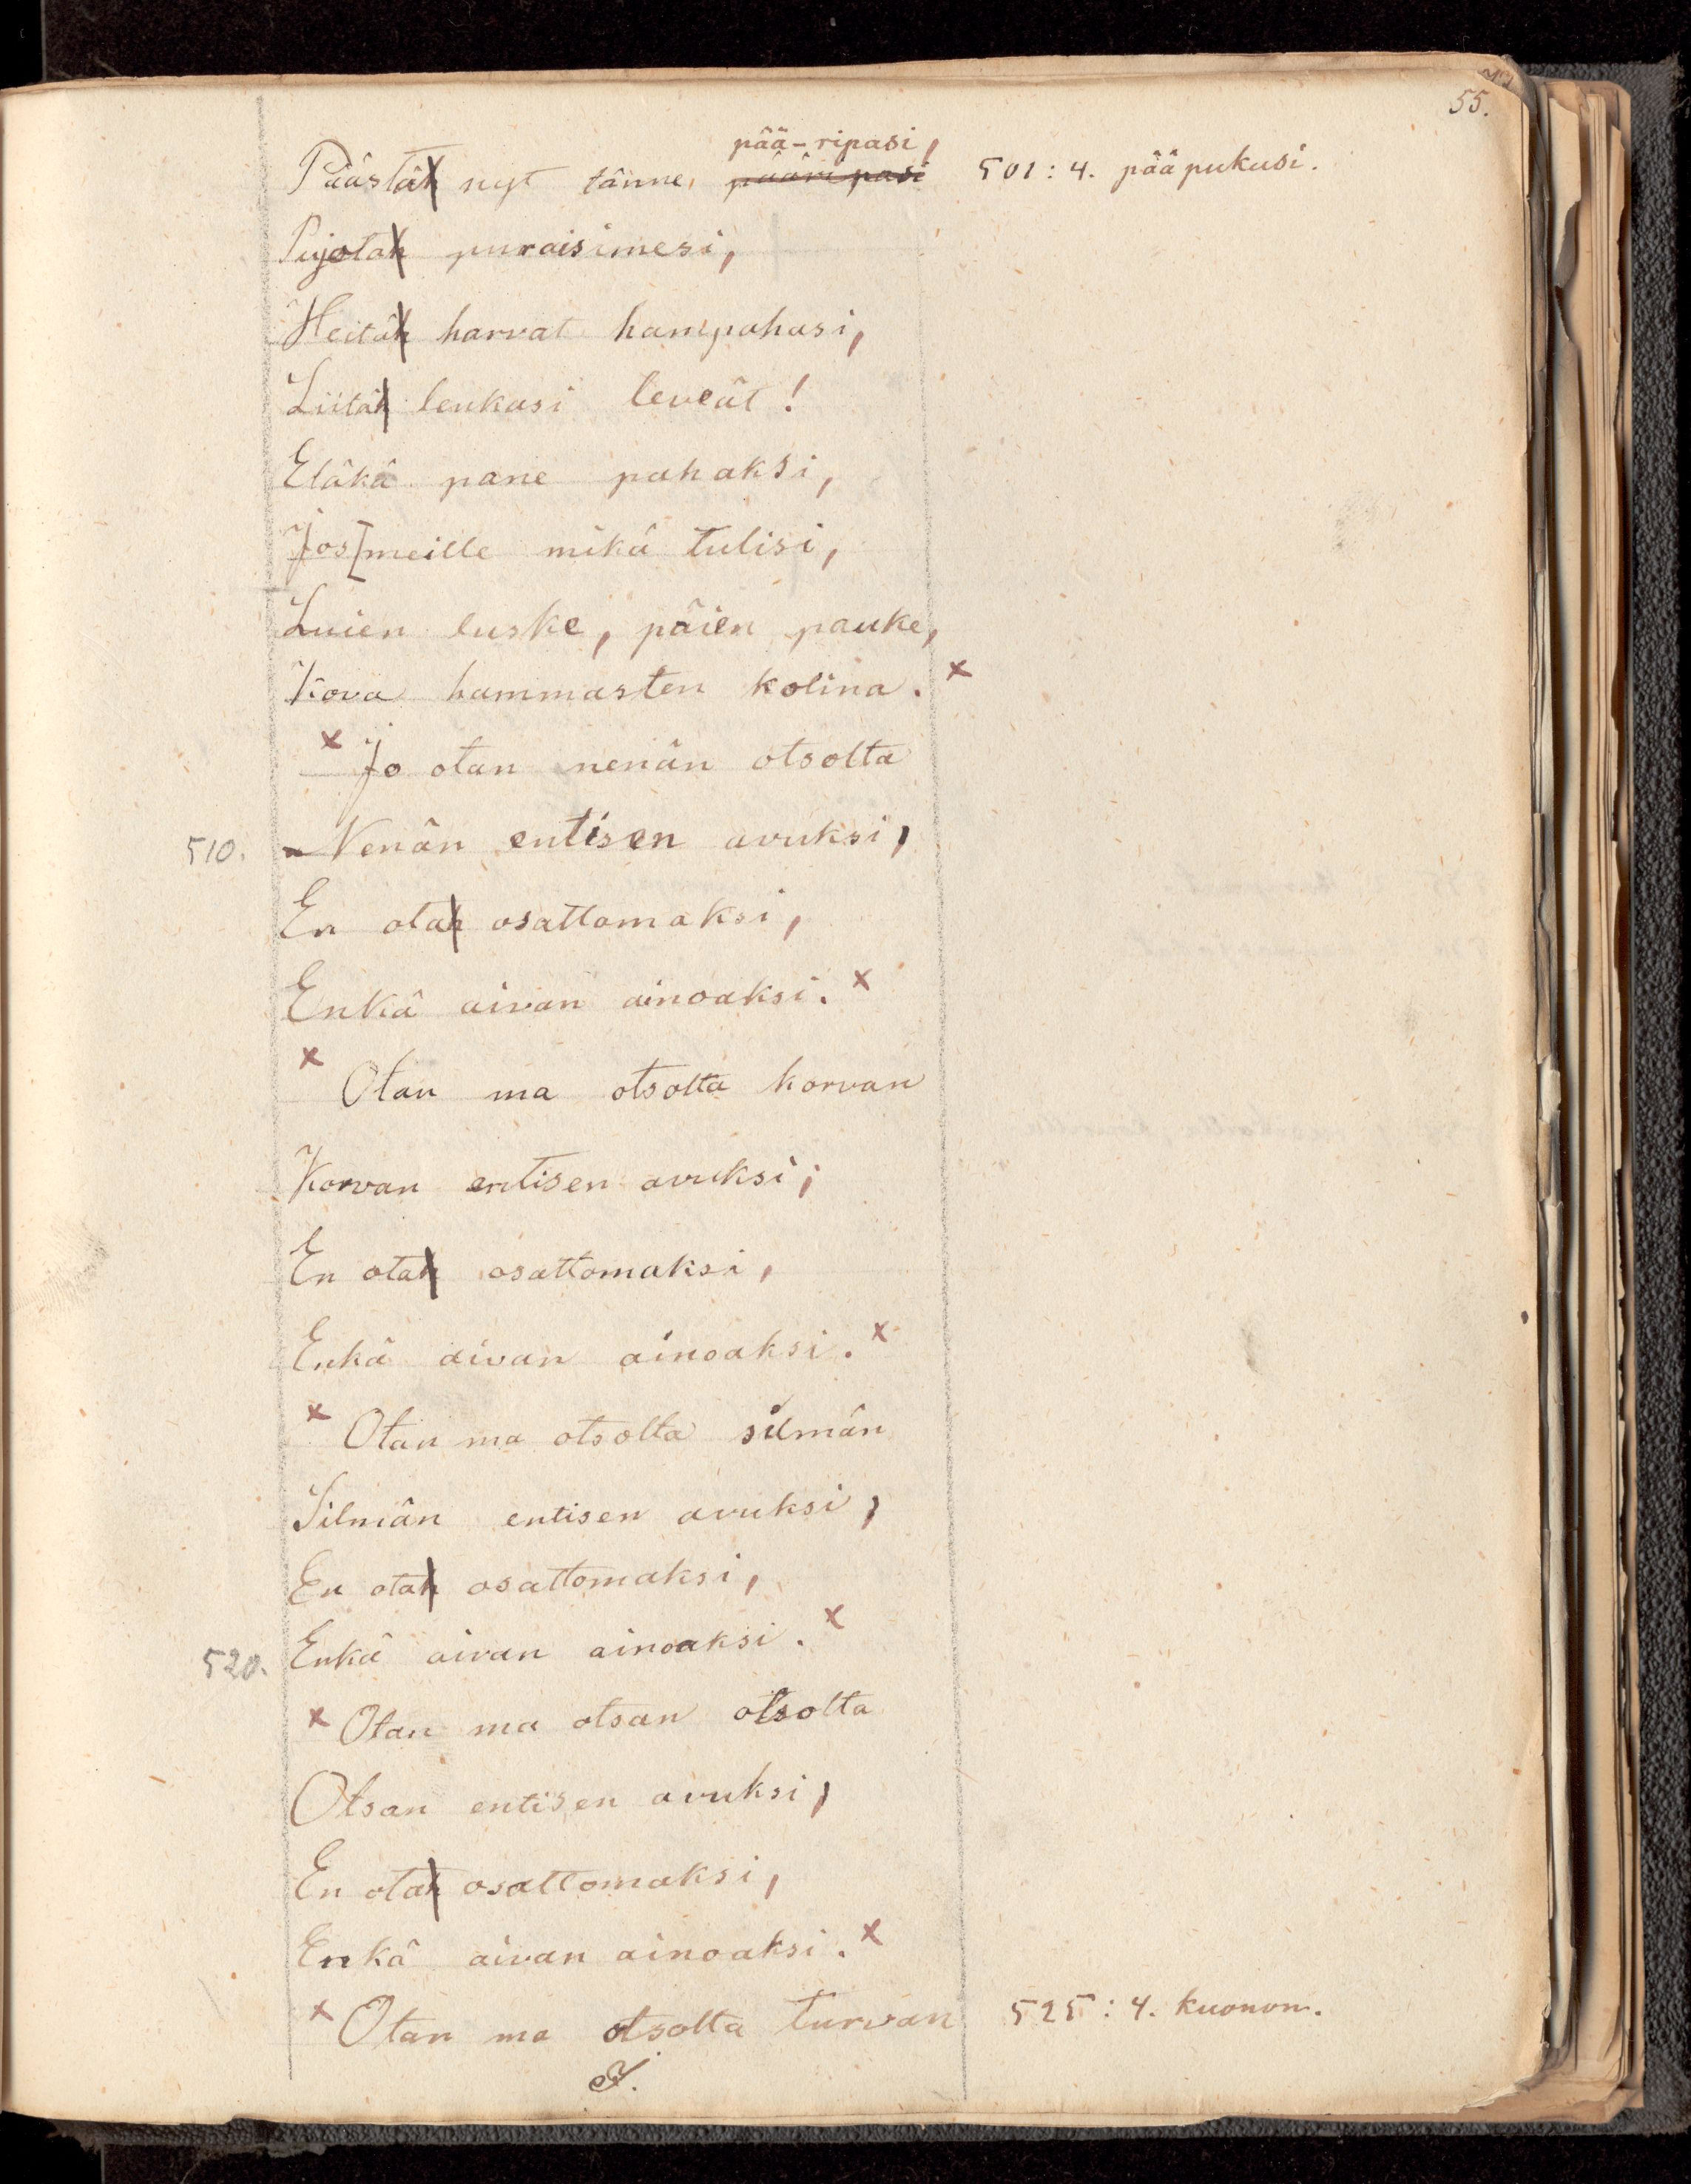 55.
pää-ripasi,
Päästäk nyt tänne, pääripasi 501:4. pääpukusi.
Pujotak puraisimesi,
Heitäk harvat hampahasi,
Liitäk leukasi leveät!
Eläkä pane pahaksi,
Jos[meille mikä tulisi,
Luien luske, päien pauke,
Kova hammasten kolina. x
x Jo otan nenän otsolta
510. Nenän entisen avuksi,
En otak osattomaksi,
Enkä aivan ainoaksi. x
x Otan ma otsolta korvan
Korvan entisen avuksi;
En otak osattomaksi,
Enkä aivan ainoaksi. x
x Otan ma otsolta silmän
Silmän entisen avuksi,
En otak osattomaksi,
520. Enkä aivan ainoaksi. x
x Otan ma otsan otsolta
Otsan entisen avuksi,
En otak osattomaksi,
Enkä aivan ainoaksi. x
x Otan ma otsolta turvan 525:4. kuonon.